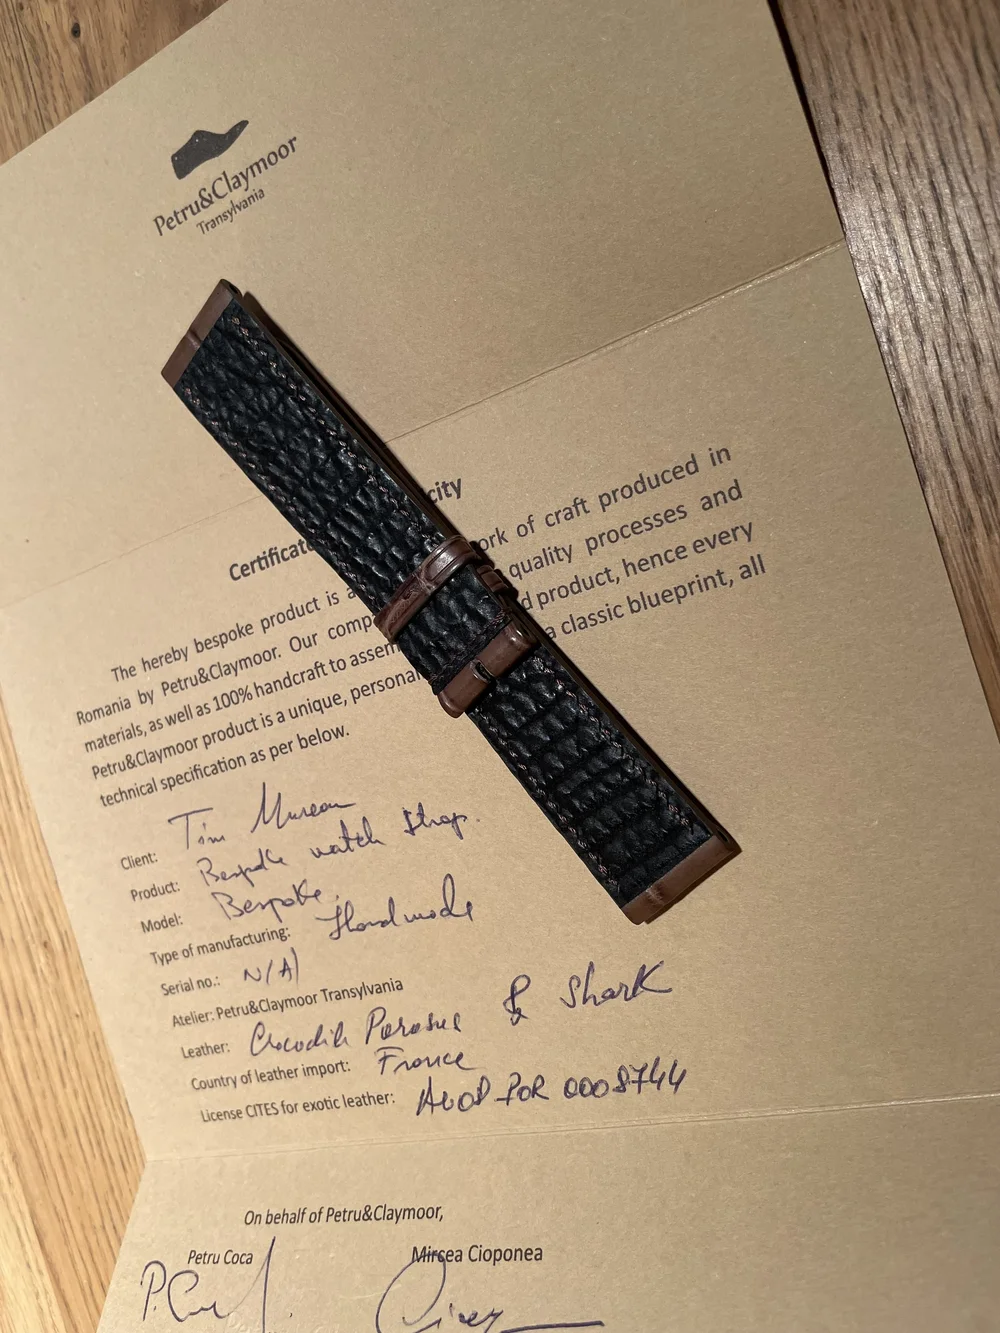 Petru&Claymoor
Transylvania
Certificat city
The hereby bespoke product is a ork of craft produced in
Romania by Petru&Claymoor. Our comp quality processes and
materials, as well as 100% handcraft to assem d product, hence every
Petru&Claymoor product is a unique, personal a classic blueprint, all
technical specification as per below.
Client: Tim
Product: Bespoke watch strap.
Model: Bespoke.
Type of manufacturing: Handmade
Serial no.: N/A
Atelier: Petru&Claymoor Transylvania
Leather: Crocodile Porosus & Shark
Country of leather import: France
License CITES for exotic leather: 0008744
On behalf of Petru&Claymoor,
Petru Coca Mircea Cioponea